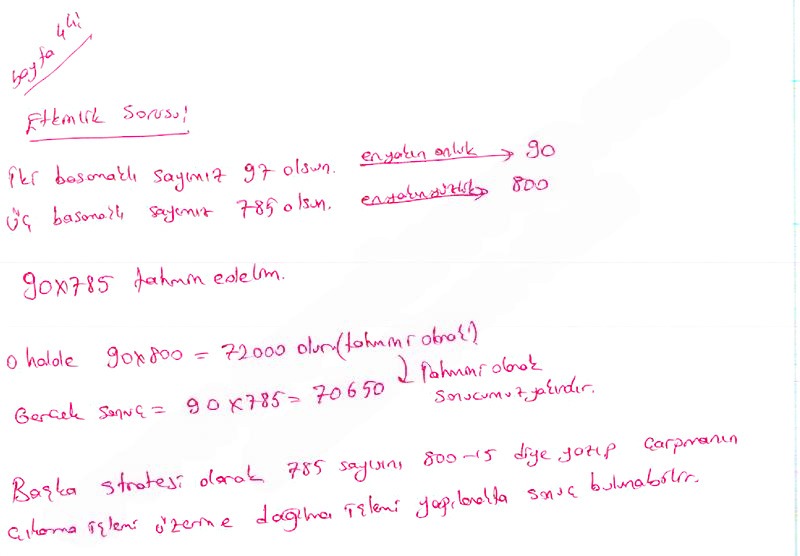 Sayfa 44!
Etkinlik Sorusu!
İki basamaklı sayımız 97 olsun. en yakın onluk → 90
Üç basamaklı sayımız 785 olsun. en yakın yüzlük → 800
90x785 tahmin edelim.
O halde 90x800 = 72000 olur. (tahmini olarak)
Gerçek sonuç = 90 x 785 = 70650 Tahmini olarak
sonucumuz yakındır.
Başka strateji olarak 785 sayısını 800-15 diye yazıp çarpmanın
çıkarma işlemi üzerine dağılma işlemi yapılarakta sonuç bulunabilir.